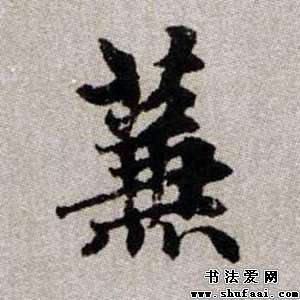 蕪
书法爱网
www.shufaai.com